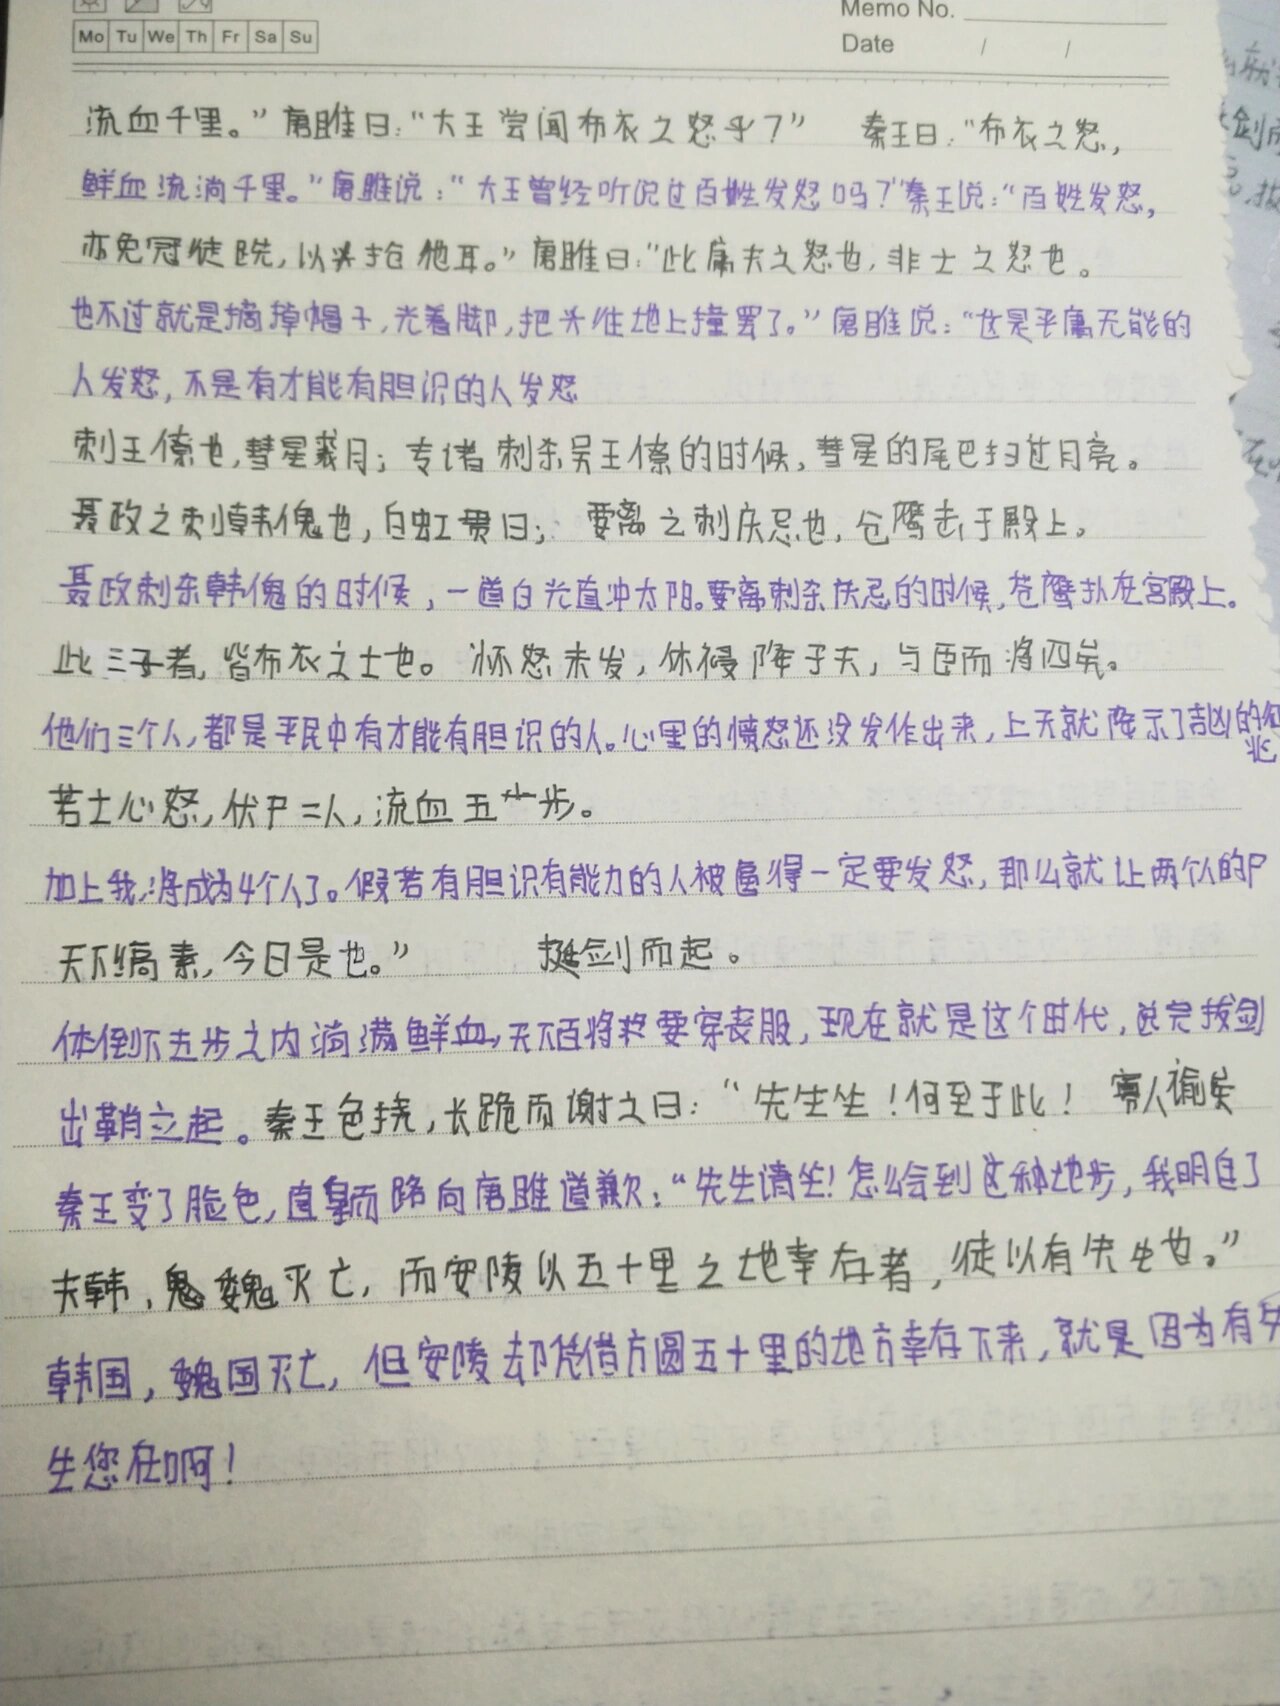 Memo No.
Mo Tu We Th Fr Sa Su
Date / /
流血千里。”唐雎曰：“大王尝闻布衣之怒乎？” 秦王曰：“布衣之怒，
鲜血流淌千里。”唐雎说：“大王曾经听说过百姓发怒吗？”秦王说：“百姓发怒，
亦免冠徒跣，以头抢地耳。”唐雎曰：“此庸夫之怒也，非士之怒也。
也不过就是摘掉帽子，光着脚，把头往地上撞罢了。”唐雎说：“这是平庸无能的
人发怒，不是有才能有胆识的人发怒
刺王僚也，彗星袭月；专诸刺杀吴王僚的时候，彗星的尾巴扫过月亮。
聂政之刺韩傀也，白虹贯日； 要离之刺庆忌也，仓鹰击于殿上。
聂政刺杀韩傀的时候，一道白光直冲太阳。要离刺杀庆忌的时候，苍鹰扑在宫殿上。
此三子者，皆布衣之士也。 怀怒未发，休祲降于天，与臣而将四矣。
他们三个人，都是平民中有才能有胆识的人。心里的愤怒还没发作出来，上天就降示了吉凶的
兆
若士心怒，伏尸二人，流血五步。
加上我，将成为4个人了。假若有胆识有能力的人被逼得一定要发怒，那么就让两个人的尸
天下缟素，今日是也。” 挺剑而起。
体倒下五步之内淌满鲜血，天下百将要穿丧服，现在就是这个时代，说完拔剑
出鞘立起。秦王色挠，长跪而谢之曰：“先生坐！何至于此！寡人谕矣
秦王变了脸色，直身而跪向唐雎道歉：“先生请坐！怎么会到这种地步，我明白了
夫韩，魏灭亡，而安陵以五十里之地幸存者，徒以有先生也。”
韩国，魏国灭亡，但安陵却凭借方圆五十里的地方幸存下来，就是因为有先
生您在啊！